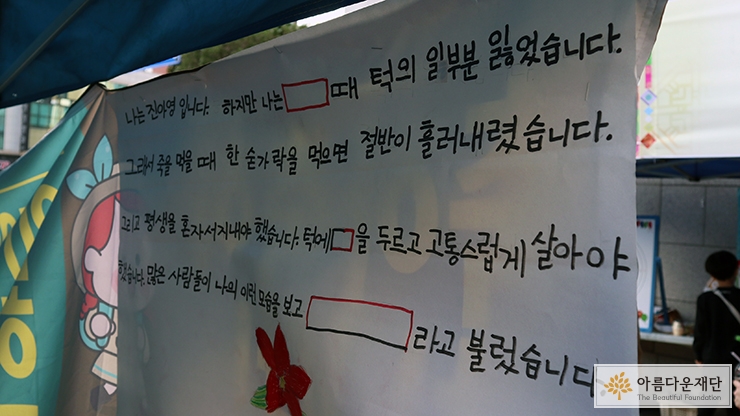 나는 진아영 입니다. 하지만 나는 때 턱의 일부분 잃었습니다.
그래서 죽을 먹을 때 한 숟가락을 먹으면 절반이 흘러내렸습니다.
그리고 평생을 혼자서지내야 했습니다. 턱에 을 두르고 고통스럽게 살아야
했습니다. 많은 사람들이 나의 이런 모습을 보고 라고 불렀습니다
아름다운재단
The Beautiful Foundation